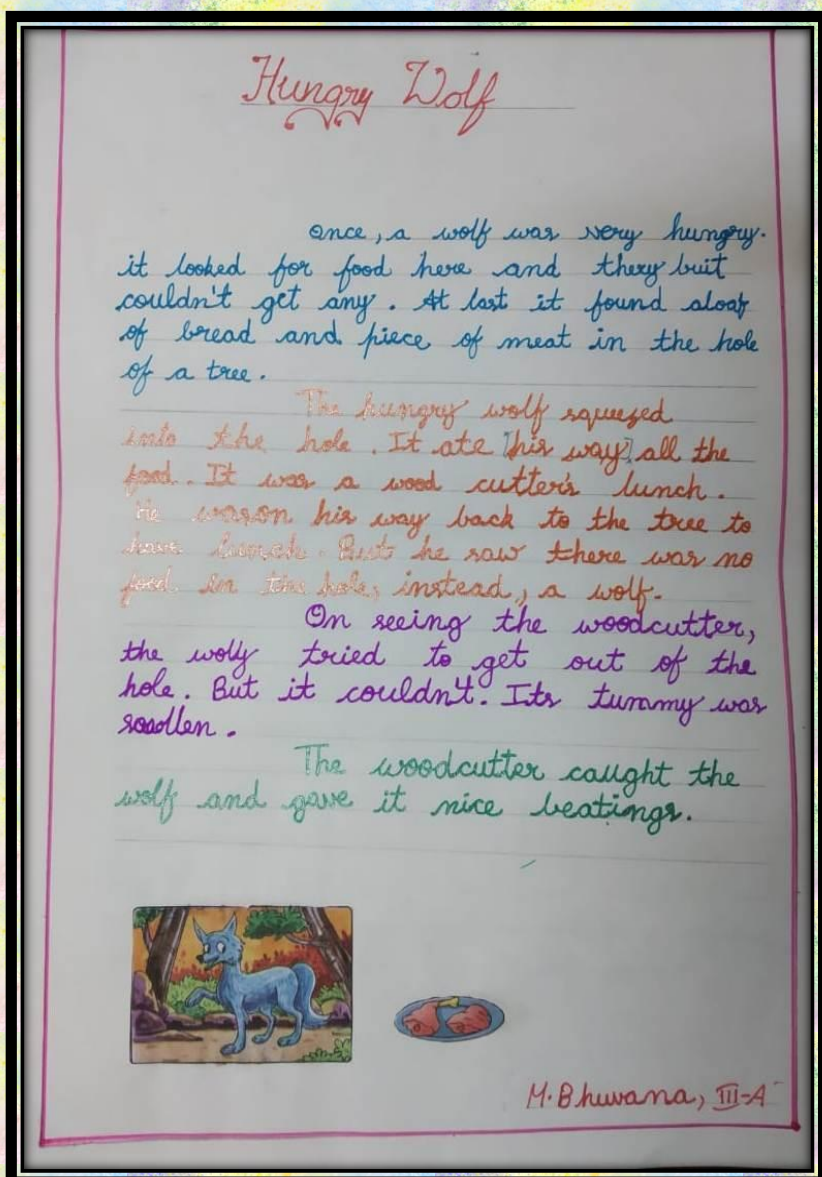 Hungry Wolf
once, a wolf was very hungry.
it looked for food here and they buit
couldn't get any. At last it found aloaf
of bread and piece of meat in the hole
of a tree.
The hungry wolf squeezed
into the hole. It ate [his way] all the
food. It was a wood cutter's lunch.
He wason his way back to the tree to
have lunch. But he saw there was no
food in the hole, instead, a wolf.
On seeing the woodcutter,
the wolly tried to get out of the
hole. But it couldn't. Its tummy was
The woodcutter caught the
wolf and gave it nice beatings.
M. Bhuvana, III-A